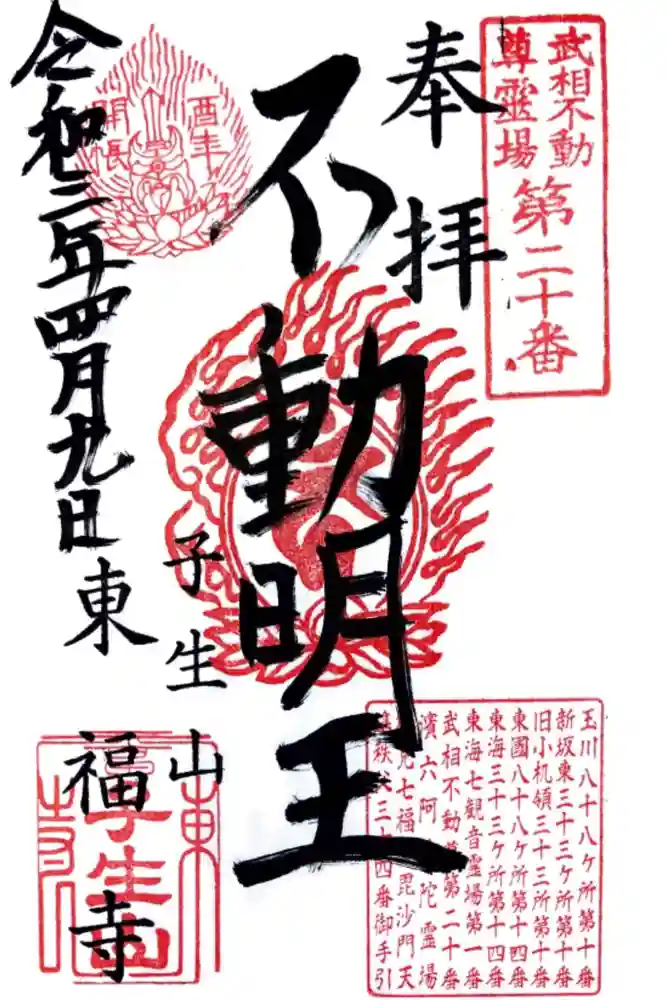 武相不動
尊霊場
第二十番
奉拝
不動明王
酉年
開帳
子生山
令和三年四月九日
東福寺
子生山
玉川八十八ケ所第十番
新坂東三十三ケ所第十番
旧小机領三十三所第十番
東國八十八ケ所第十四番
東海三十三ケ所第十四番
東海七観音霊場第一番
武相不動尊第二十番
濱六阿陀霊場
七福毘沙門天
秩父三十四番御手引